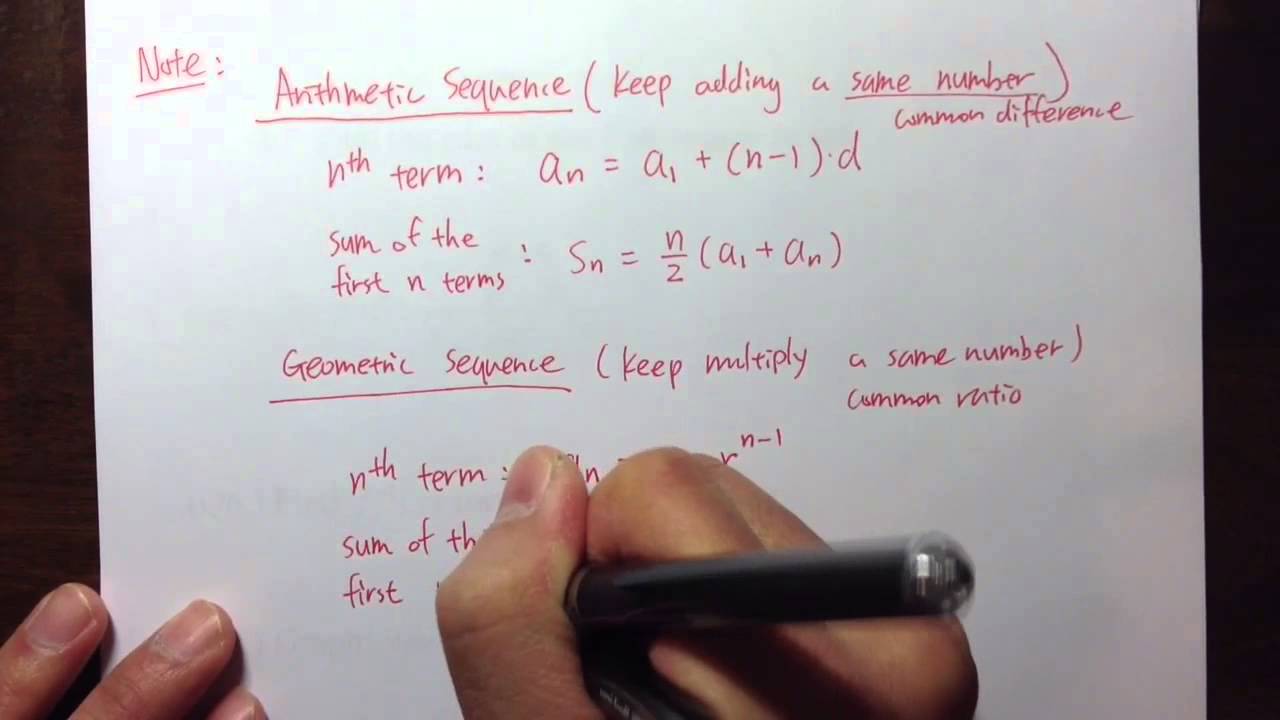 Note:
Arithmetic Sequence (keep adding a same number)
common difference
nth term: an = a1 + (n-1)·d
sum of the
first n terms : Sn = n/2 (a1 + an)
Geometric Sequence (keep multiply a same number)
common ratio
nth term: n r^n-1
sum of
first